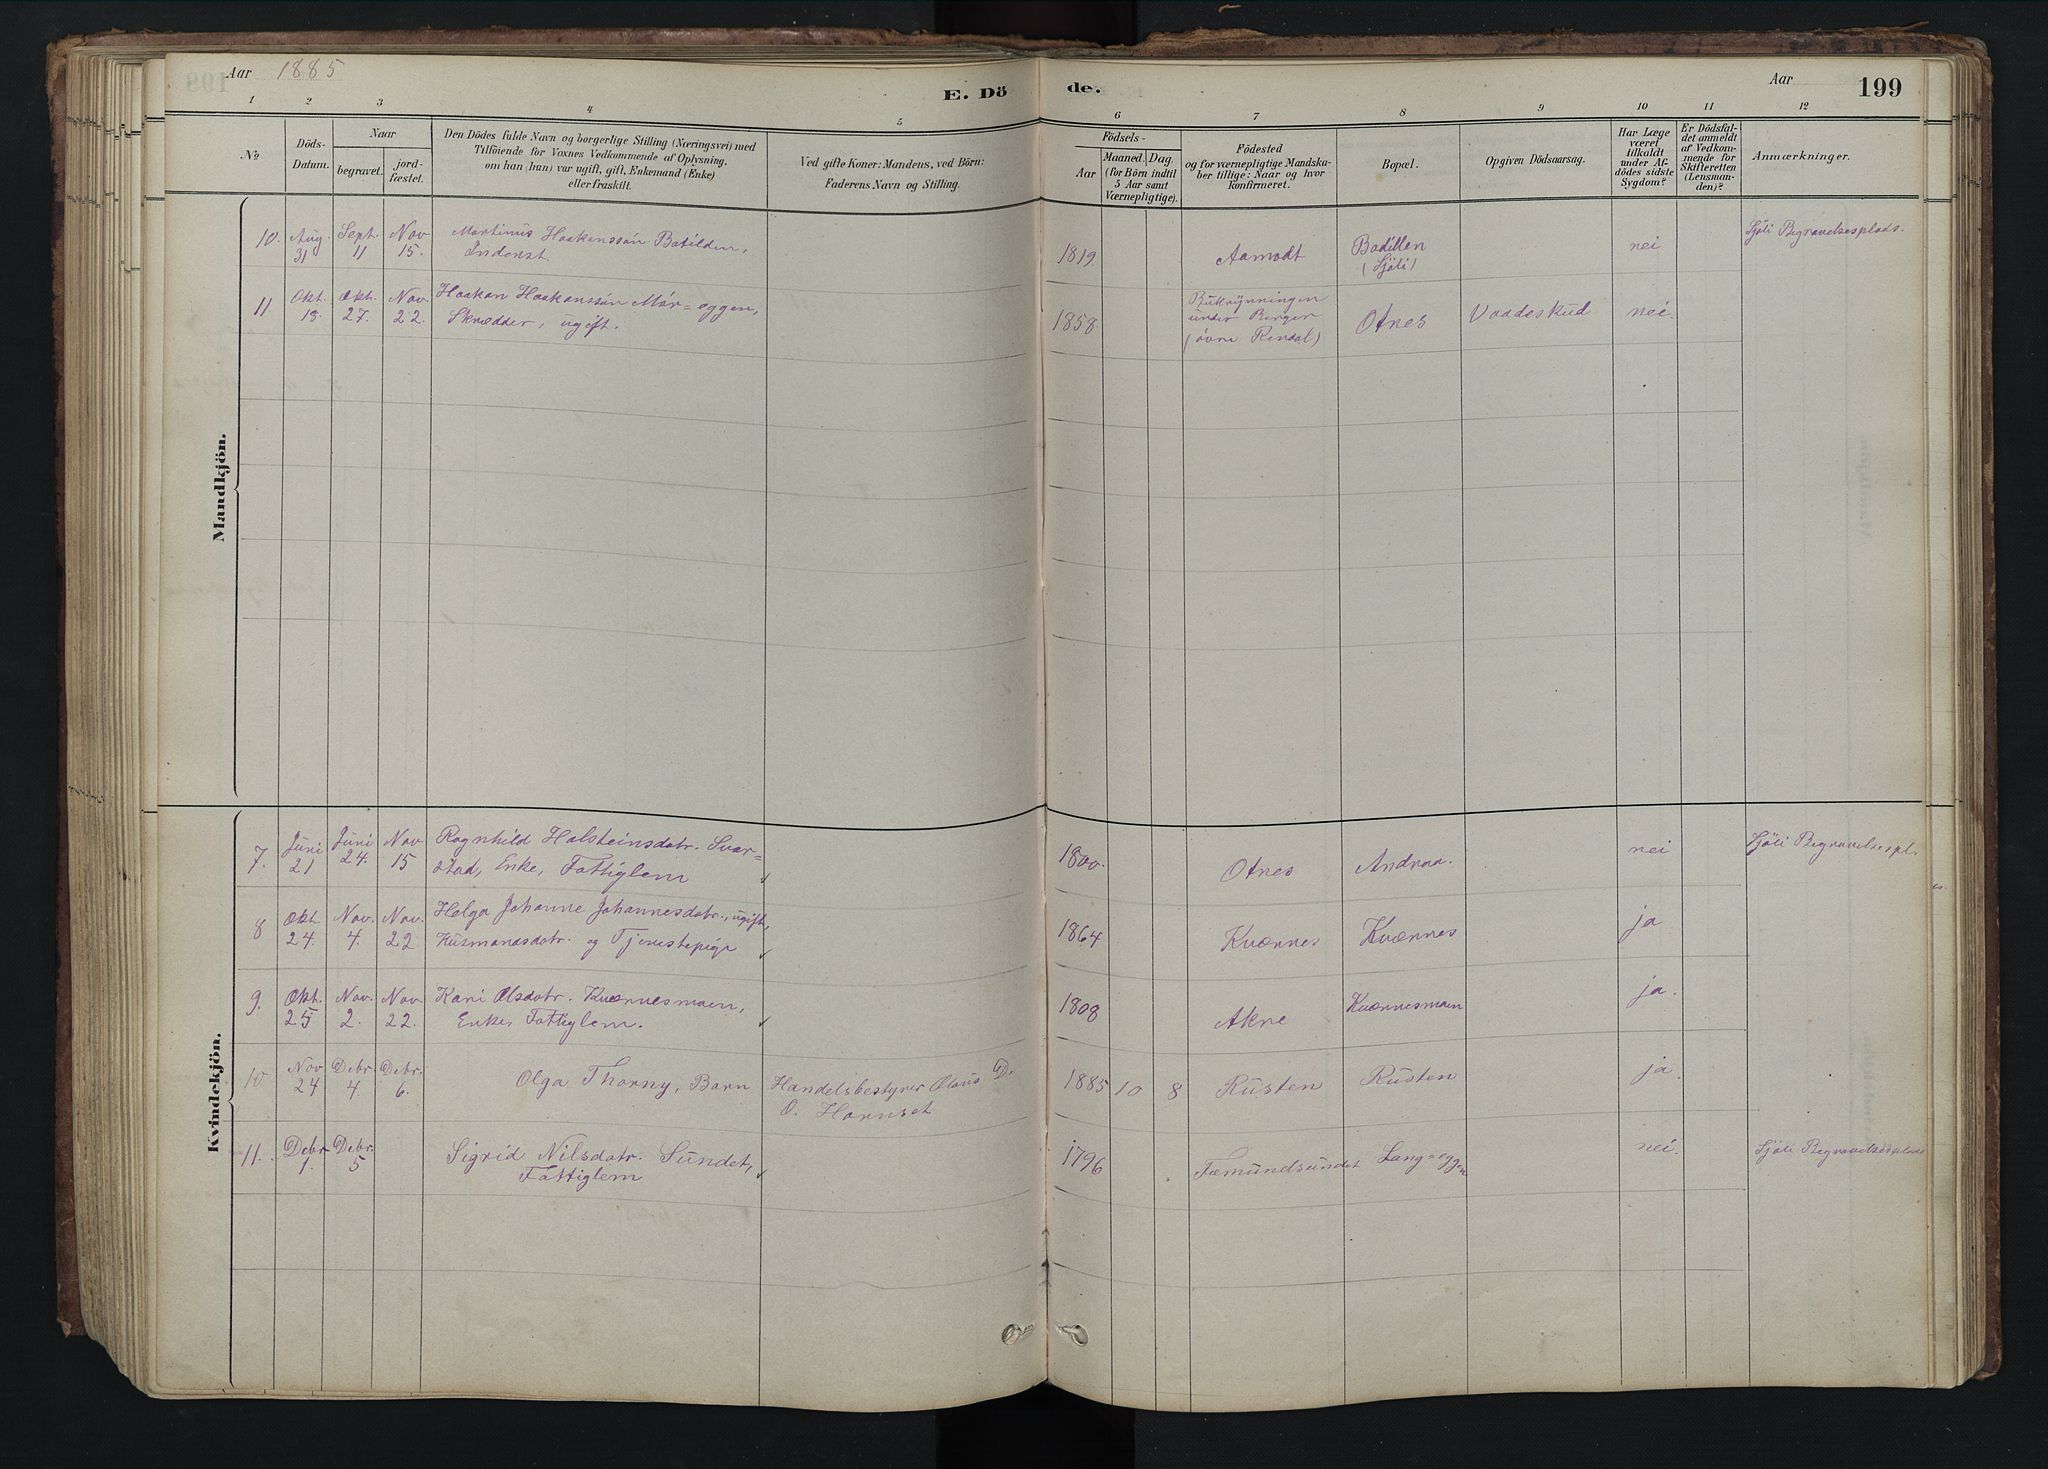 Aar 1885
E. Dö
de.
Aar
199
1 2 3 4 5 6 7 8 9 10 11 12
No
Döds-
Datum.
Naar
begravet.
jord-
fæstet.
Den Dödes fulde Navn og borgerlige Stilling (Næringsvei) med
Tilföiende for Voxnes Vedkommende af Oplysning,
om han (hun) var ugift, gift, Enkemand (Enke)
eller fraskilt.
Ved gifte Koner: Mandens, ved Börn:
Faderens Navn og Stilling.
Födsels-
Aar
Maaned. Dag.
(for Börn indtil
5 Aar samt
Værnepligtige).
Födested
og for værnepligtige Mandska-
ber tillige: Naar og hvor
konfirmeret.
Bopæl.
Opgiven Dödsaarsag.
Har Læge
været
tilkaldt
under Af-
dödes sidste
Sygdom?
Er Dödsfal-
det anmeldt
af Vedkom-
mende for
Skifteretten
(Lensman-
den)?
Anmærkninger.
Mandkjön.
10. Aug. 31 Sept. 11 Nov 15. Martinus Haakanssön Batilden,
Inderst.
1819. Aamodt Badillen
(Sjöli)
nei Sjöli Begravelsesplads.
11 Okt. 18. Okt. 27. Nov. 22. Haakan Haakanssön Mör=eggen,
Skrædder, ugift.
1858. under Berger
(övre Rendal)
Otnes Vaadeskud nei.
Kvindekjön.
7. Juni 21 Juni 24. Nov 15 Ragnhild Halsteinsdatr. Svar=
stad, Enke, Fattiglem
1800. Otnes Andraa. nei Sjöli Begravelsespl.
8 Okt. 24. Nov. 4. Nov. 22 Helga Johanne Johannesdatr., ugift,
Husmandsdatr. og Tjenestepige
1864 Kværnes Kværnes ja
9. Okt. 25 Nov. 2. Nov. 22. Kari Olsdatr. Kværnesmoen,
Enke, Fattiglem.
1808 Akre Kværnesmoen ja.
10 Nov 24 Debr. 4. Debr. 6. Olga Thorny, Barn Handelsbestyrer Olaus
O. Hornset
1885 10 8 Rusten Rusten ja.
11. Debr. 1. Debr. 5 Sigrid Nilsdatr. Sundet,
Fattiglem
1796 Fæmundsundet Lang=eggen nei. Sjöli Begravelsesplads